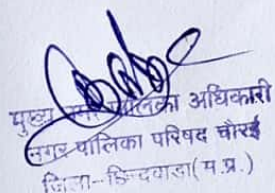 मुख्य नगर पालिका अधिकारी
नगर पालिका परिषद चौरई
जिला-छिन्दवाडा (म.प्र.)